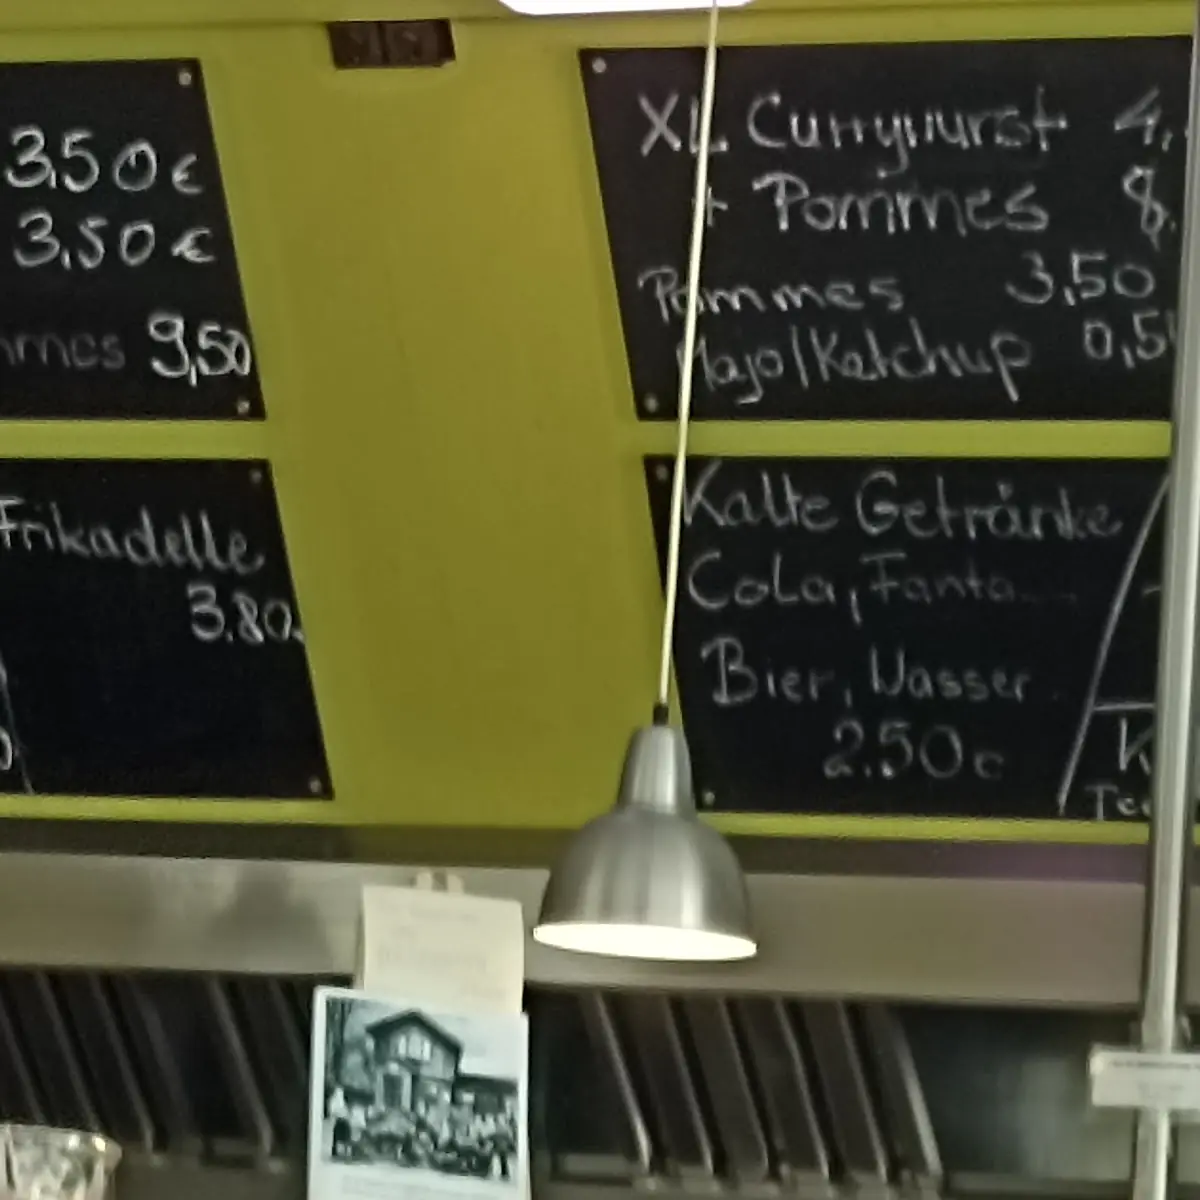 3,50€
3,50€
9,50
Frikadelle
3.80
XL Currywurst 4,
+ Pommes 8,
Pommes 3,50
Majo/Ketchup 0,5
Kalte Getränke
Cola, Fanta...
Bier, Wasser
2.50€